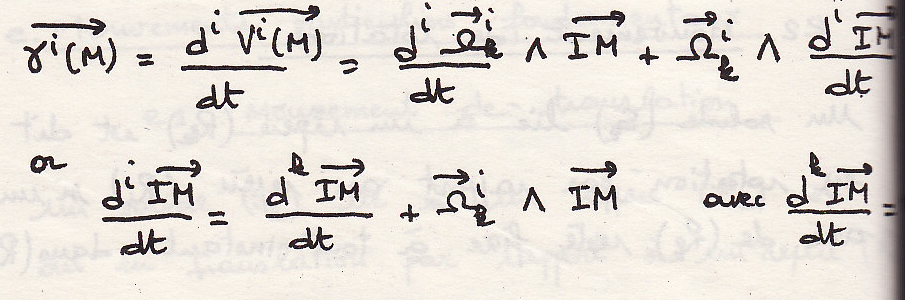 γ⃗ⁱ(M) = dⁱ V⃗ⁱ(M)/dt = dⁱ Ω⃗ₖⁱ/dt ∧ IM⃗ + Ω⃗ₖⁱ ∧ dⁱ IM⃗/dt
or dⁱ IM⃗/dt = dᵏ IM⃗/dt + Ω⃗ₖⁱ ∧ IM⃗ avec dᵏ IM⃗/dt =